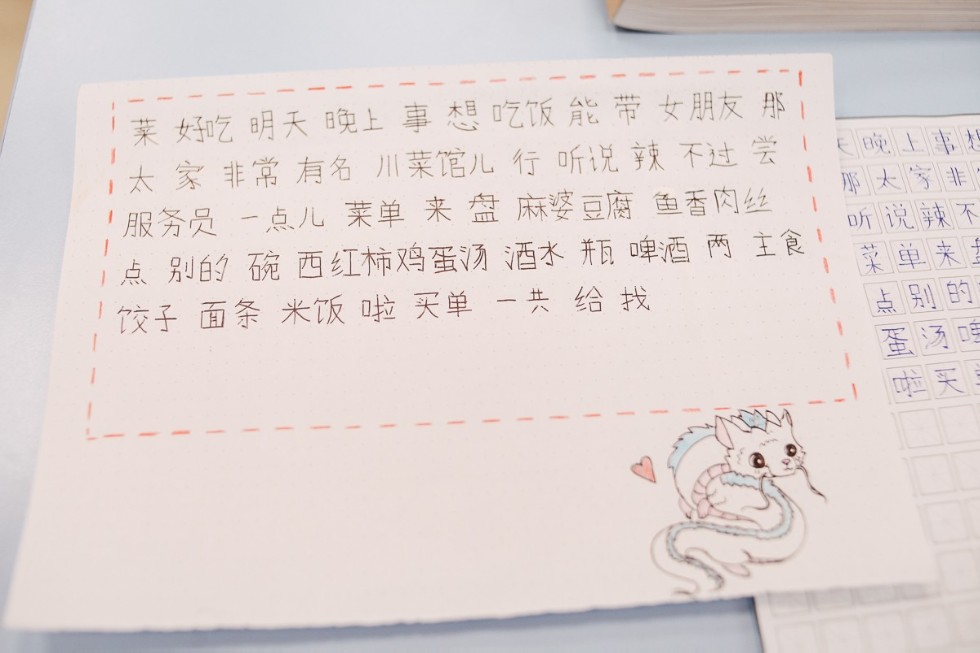 菜 好吃 明天 晚上 事 想 吃饭 能 带 女朋友 那
太 家 非常 有名 川菜馆儿 行 听说 辣 不过 尝
服务员 一点儿 菜单 来 盘 麻婆豆腐 鱼香肉丝
点 别的 碗 西红柿鸡蛋汤 酒水 瓶 啤酒 两 主食
饺子 面条 米饭 啦 买单 一共 给 找
晚上事想
那太家非
听说辣不
菜单来盘
点别的
蛋汤啤
啦买